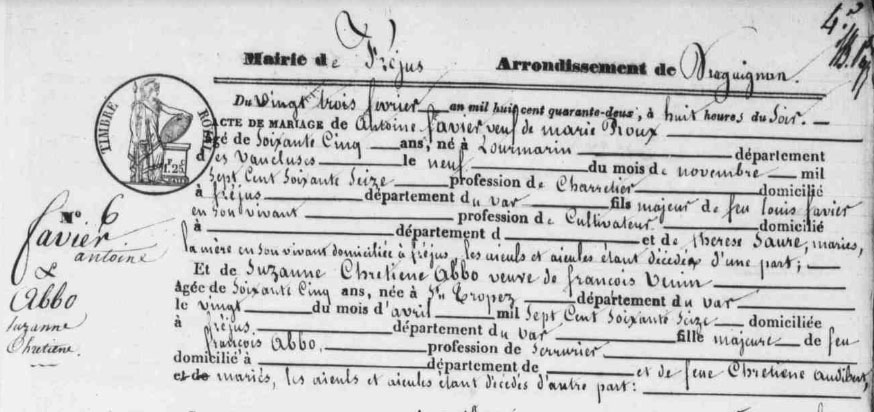 Mairie de Fréjus Arrondissement de Draguignan
TIMBRE ROYAL
1F.25c
Du Vingt trois fevrier an mil huit cent quarante-deux, à huit heures du Soir.
ACTE DE MARIAGE de Antoine Favier veuf de marie Roux
âgé de Soixante Cinq ans, né à Lourmarin département
des Vancluses le neuf du mois de novembre mil
Sept Cent Soixante Seize profession de Charretier domicilié
à fréjus département du var fils majeur de feu Louis favier
en son vivant profession de Cultivateur domicilié
à département d et de therese Saure, mariés,
la mère en son vivant domiciliée à fréjus, les aieuls et aieules étant décédés d'une part;
Et de Suzanne Chretiene Abbo veuve de francois Venin
âgée de Soixante Cinq ans, née à St Tropez département du var
le vingt du mois d'avril mil Sept Cent Soixante Seize domiciliée
à fréjus département du var fille majeure de feu
françois Abbo, profession de Serrurier
domicilié à département de et de feue Chretiene audibert,
et de mariés, les aieuls et aieules étant décédés d'autre part:
No 6
favier
antoine
&
Abbo
suzanne
Chretiene